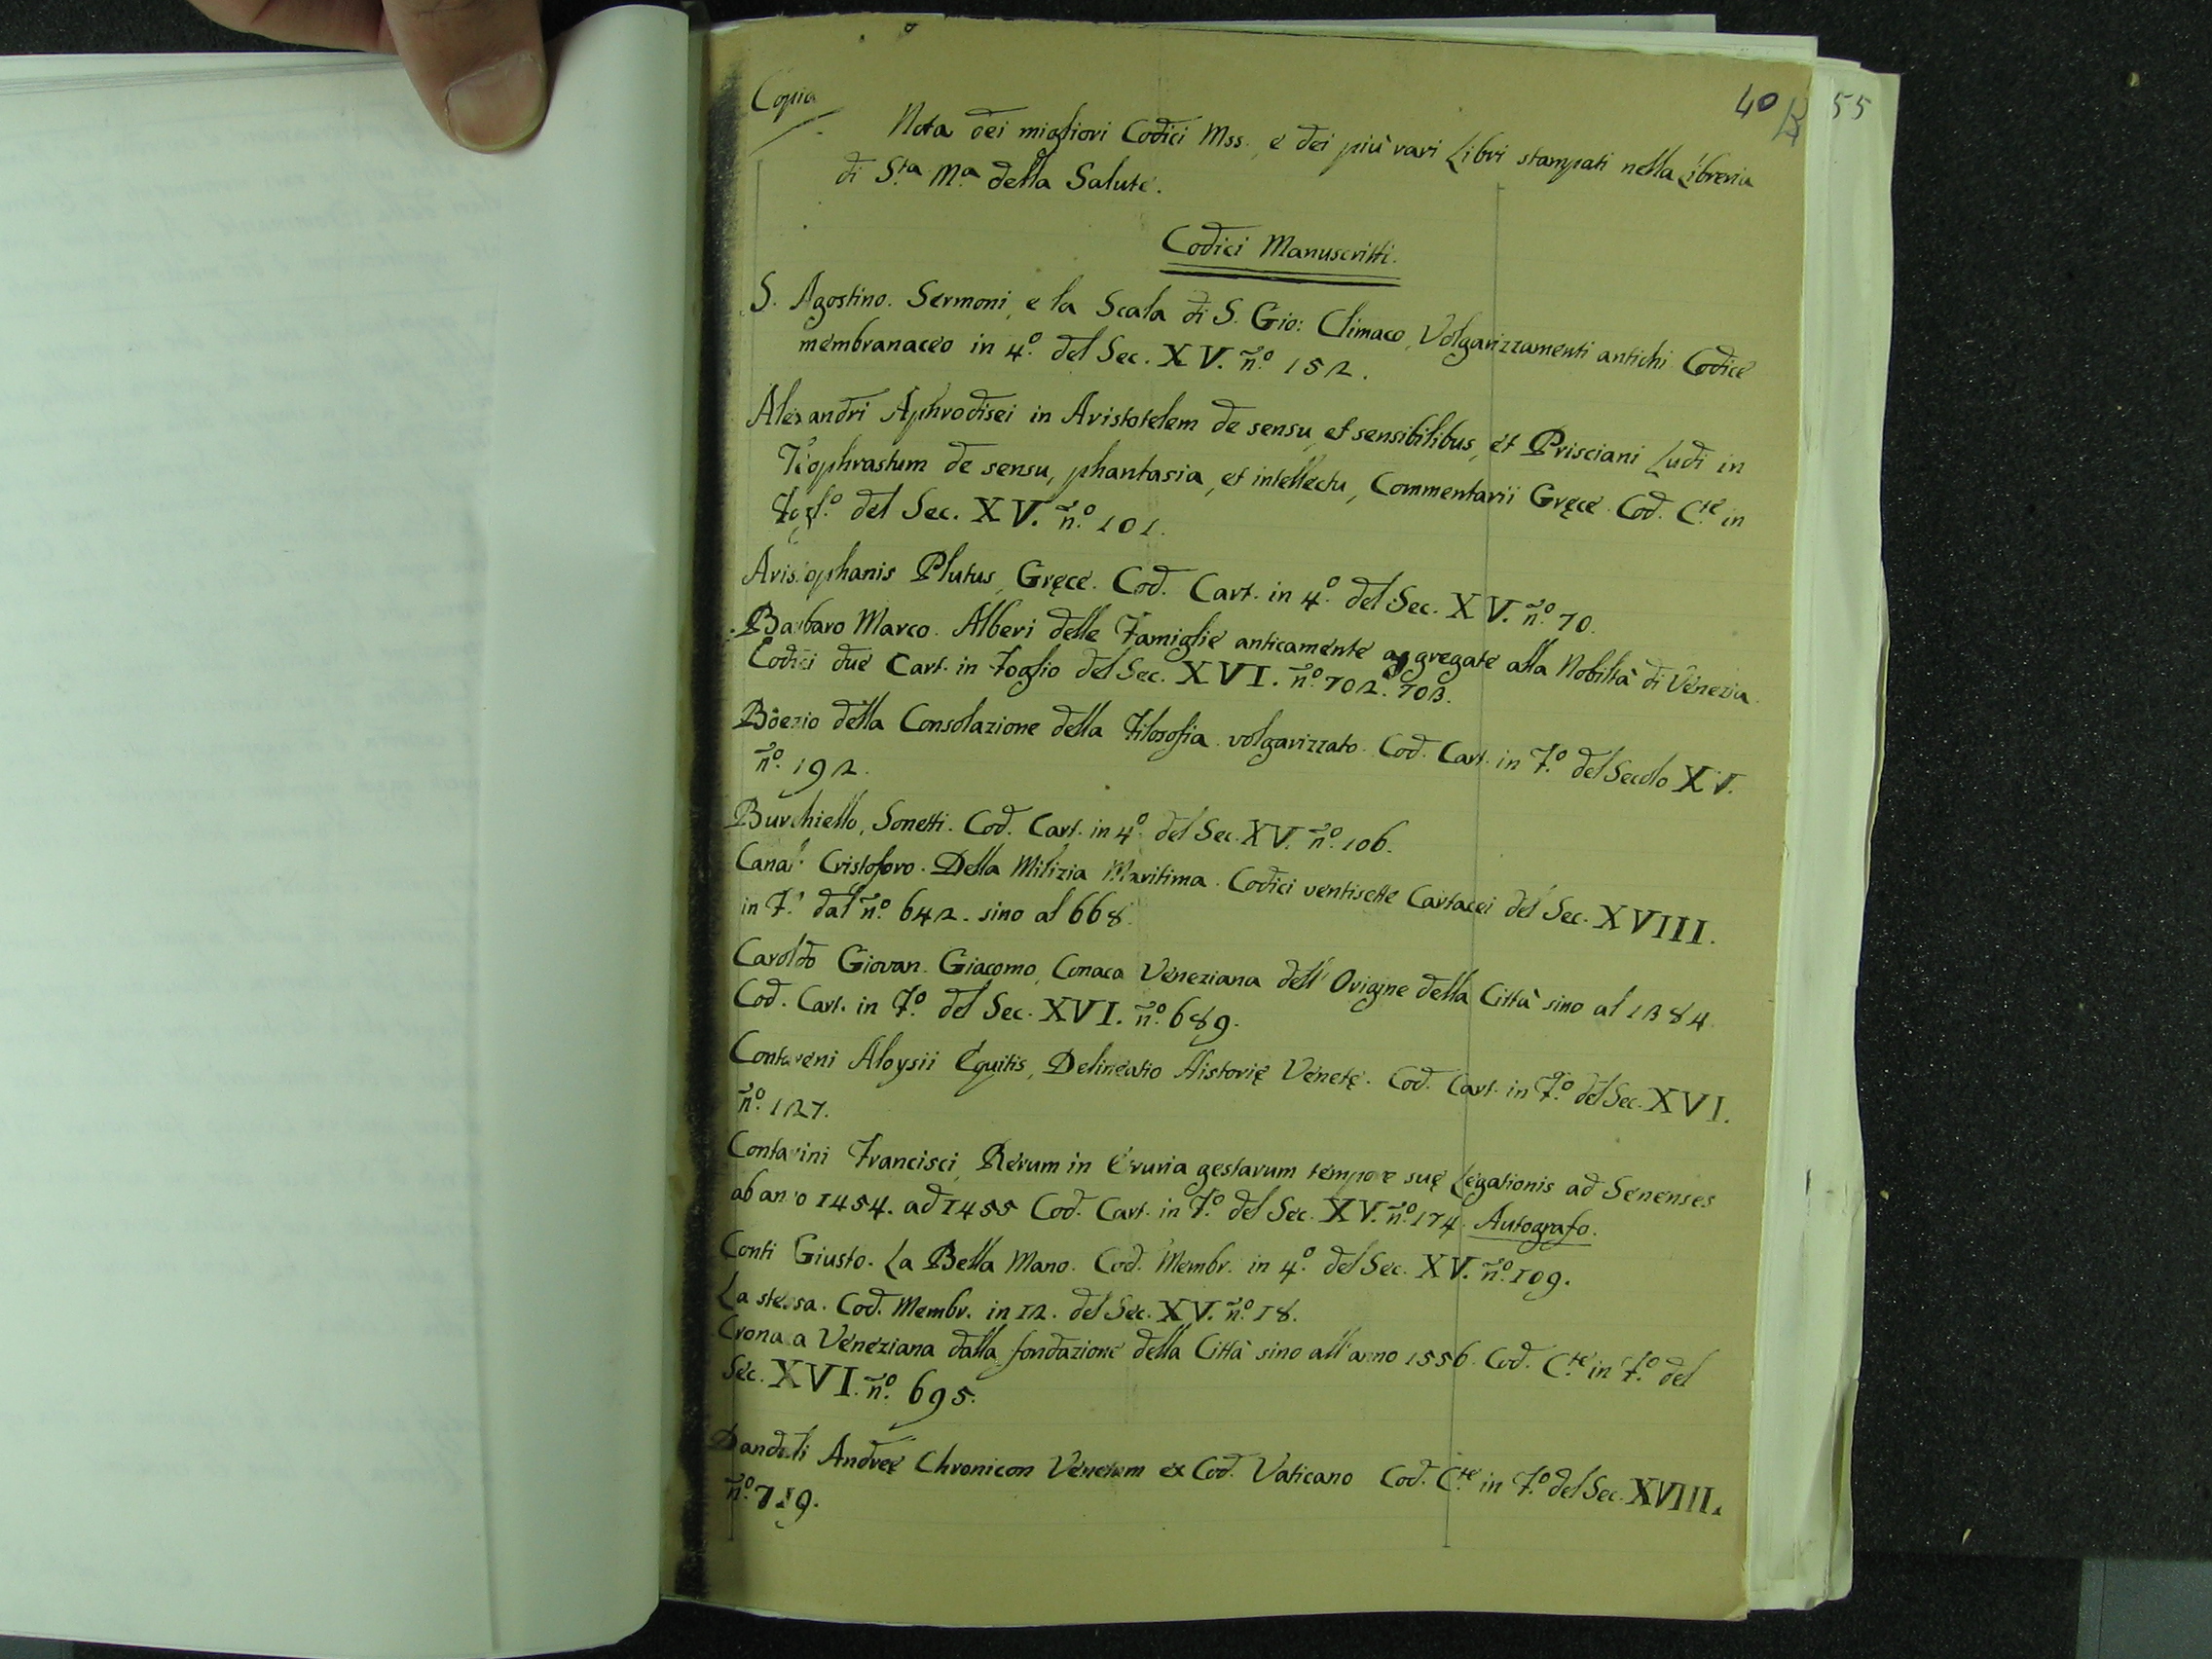 Copia
40 55
Nota dei migliori Codici Mss. e dei più rari Libri stampati nella Libreria
di S.ta M.a della Salute.
Codici Manuscritti.
S. Agostino. Sermoni, e la Scala di S. Gio: Climaco, Volgarizzamenti antichi. Codice
membranaceo in 4.o del Sec. XV. n.o 152.
Alexandri Aphrodisei in Aristotelem de sensu, et sensibilibus, et Prisciani Ludi in
Teophrastum de sensu, phantasia, et intellectu, Commentarii Gręce. Cod. C.te in
Fogl.o del Sec. XV. n.o 101.
Aristophanis Plutus, Gręce. Cod. Cart. in 4.o del Sec. XV. n.o 70.
Barbaro Marco. Alberi delle Famiglie anticamente aggregate alla Nobiltà di Venezia.
Codici due Cart. in Foglio del Sec. XVI. n.o 702. 703.
Boezio della Consolazione della Filosofia. volgarizzato. Cod. Cart. in F.o del Secolo XV.
n.o 192.
Burchiello, Sonetti. Cod. Cart. in 4.o del Sec. XV. n.o 106.
Canal Cristoforo. Della Milizia Maritima. Codici ventisette Cartacei del Sec. XVIII.
in F.o dal n.o 642. sino al 668.
Caroldo Giovan. Giacomo, Conaca Veneziana dell'Origine della Città sino al 1384.
Cod. Cart. in F.o del Sec. XVI. n.o 689.
Contareni Aloysii Equitis, Delineatio Historię Venetę. Cod. Cart. in F.o del Sec. XVI.
n.o 127.
Contarini Francisci, Rerum in Eruria gestarum tempore suę Legationis ad Senenses
ab anno 1454. ad 1455 Cod. Cart. in F.o del Sec. XV. n.o 174. Autografo.
Conti Giusto. La Bella Mano. Cod. Membr. in 4.o del Sec. XV. n.o 109.
La stessa. Cod. Membr. in 12. del Sec. XV. n.o 18.
Cronaca Veneziana dalla fondazione della Città sino all'anno 1556. Cod. C.te in F.o del
Sec. XVI. n.o 695.
Danduli Andreę Chronicon Venetum ex Cod. Vaticano Cod. C.te in F.o del Sec. XVIII.
n.o 719.